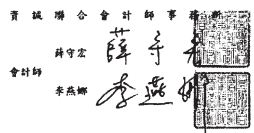 資誠聯合會計師事務所
薛守宏
會計師
李燕娜